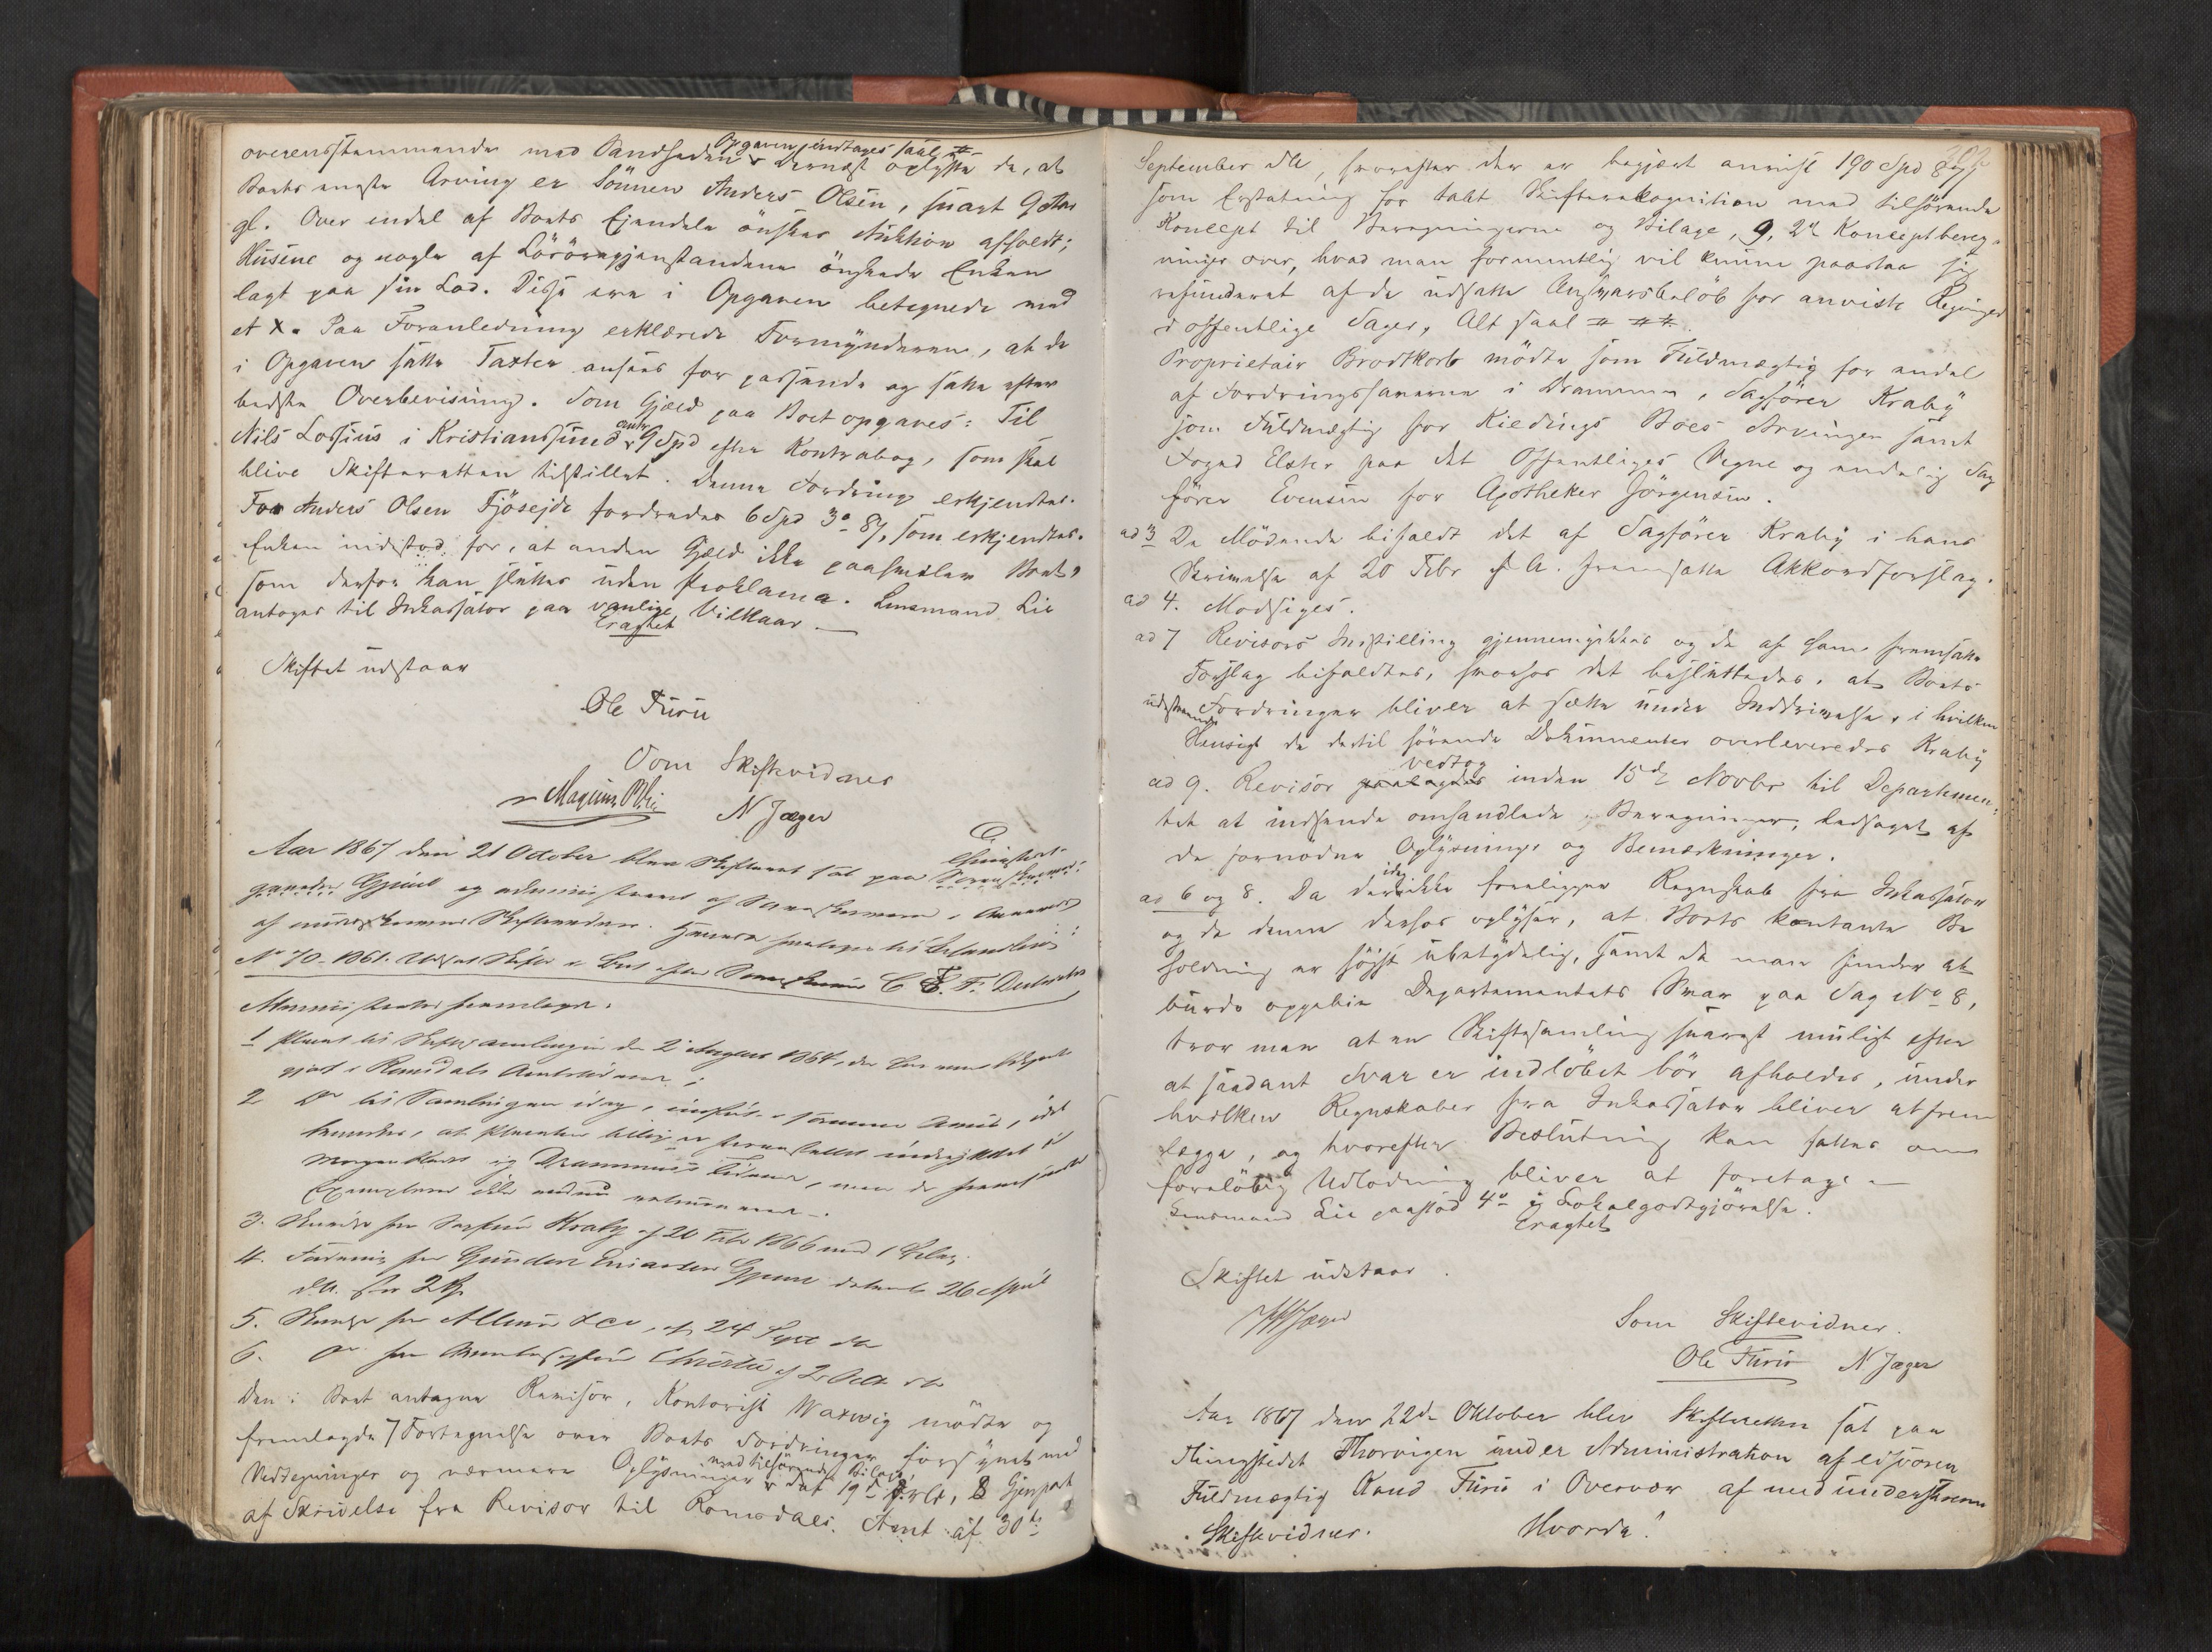 overensstemmende med Sandheden. Opgaven indtages saal. # Dernæst oplyste de, at
Boets eneste Arving er Sönnen Anders Olsen, snart 9 Aar
gl. Over endel af Boets Ejendele önskes Auktion afholdt;
Husene og nogle af Lösöregjenstandene önskede Enken
lagt paa sin Lod. Disse ere i Opgaven betegnede med
et X. Paa Foranledning erklærede Formynderen, at de
i Opgaven satte Taxter ansees for passende og satte efter
bedste Overbevisning. Som Gjæld paa Boet opgaves: Til
Nils Lossius i Kristianssund 9 Spd efter Kontrabog, som skal
blive Skifteretten tilstillet. Denne Fordring erkjendtes.
For Anders Olsen Fjösejde fordredes 6 Spd 3 o 8 /, som erkjendtes.
Enken indestod for, at anden Gjæld ikke paahviler Boet,
som derfor kan sluttes uden Proklama. Lensmand Lie
antoges til Inkassator paa vanlige Vilkaar. —
Eragtet
Skiftet udstaar
Ole Furu
Som Skiftevidner
N Jæger
Aar 1867 den 21 October blev Skifteret sat paa
af undertegnede Skiftevidner. Hvorda foretoges til Behandling:
No 70-1861.
Administrator fremlagde.
1 Placat til Skiftesamlingen den 2 August 1864,
i Romsdals Amtstidende;
2 Do til Samlingen idag, indført i samme Avis, idet
bemærkes, at Placaten tillige er foranstaltet indrykket i
Morgenbladet og Drammens Tidende, men de
Exemplarer ikke endnu
3. Skrivelse fra Sagfører Kraby af 20 Febr 1866 med 1 Bilag.
4. Fordring fra Gunder dateret 26 April
d.A. for 2
5. Skrivelse fra af 24 Sept d.A.
6. Do fra Christie af 2 Oct d A
Den i Boet antagne Revisor, Kontorist Warwig mödte og
fremlagde 7 Fortegnelse over Boets Fordringer forsynet med
Vedtegninger og nærmere Oplysninger med tilhörende Bilage, dat 19de, 8 Gjenpart
af Skrivelse fra Revisor til Romsdals Amt af 30te
September d A, hvorefter der er begjært anvist 190 Spd
som Erstatning for tabt Skifterekognition med tilhörende
Koncept til Beregningerne og Bilage, 9, 2de Konceptbereg-
ninger over, hvad man formentlig vil kunne paastaa sig
refunderet af de udsatte Ansvarsbelöb for anviste Regninger
i offentlige Sager, Alt saal # # #.
Proprietair Brodtkorb mödte som Fuldmægtig for endel
af Fordringshaverne i Drammen, Sagförer Kraby
som Fuldmægtig for Kiedings Boes Arvinger samt
Foged Elster paa det Offentliges Vegne og endelig Sag
förer Evensen for Apotheker Jörgensen.
ad 3 De Mödende bifaldt det af Sagförer Kraby i hans
Skrivelse af 20 Febr f A. fremsatte Akkordforslag.
ad 4. Modsiges.
ad 7 Revisors Indstilling gjennemgikkes og de af ham fremsatte
Forslag bifaldtes, hvorhos det besluttedes, at Boets
udestaaende Fordringer bliver at sætte under Inddrivelse, i hvilken
Hensigt de dertil hörende Dokumenter overleveredes Kraby
ad 9. Revisor vedtog inden 15de Novbr til Departemen-
tet at indsende omhandlede Beregninger, ledsaget af
de fornödne Oplysninger og Bemærkninger.
ad 6 og 8. Da der idag ikke foreligger Regnskab fra Inkassator
og da denne derhos oplyser, at Boets kontante Be
holdning er höist ubetydelig, samt da man finder at
burde oppebie Departementets Svar paa Sag No 8,
tror man at en Skiftesamling snarest muligt efter
at saadant Svar er indlöbet bör afholdes, under
hvilken Regnskaber fra Inkassator bliver at frem
lægge, og hvorefter Beslutning kan fattes om
forelöbig Udlodning bliver at foretage —
Lensmand Lie paastod 4 o i Lokalgodtgjörelse.
Eragtet
Skiftet udstaar.
Som Skiftevidner.
Ole Furu N Jæger
Aar 1867 den 22de Oktober blev Skifteretten sat paa
Thingstedet Thorvigen under Administration af edsvoren
Fuldmægtig Kand Furu i Overvær af med underskrevne
Skiftevidner. Hvorda!